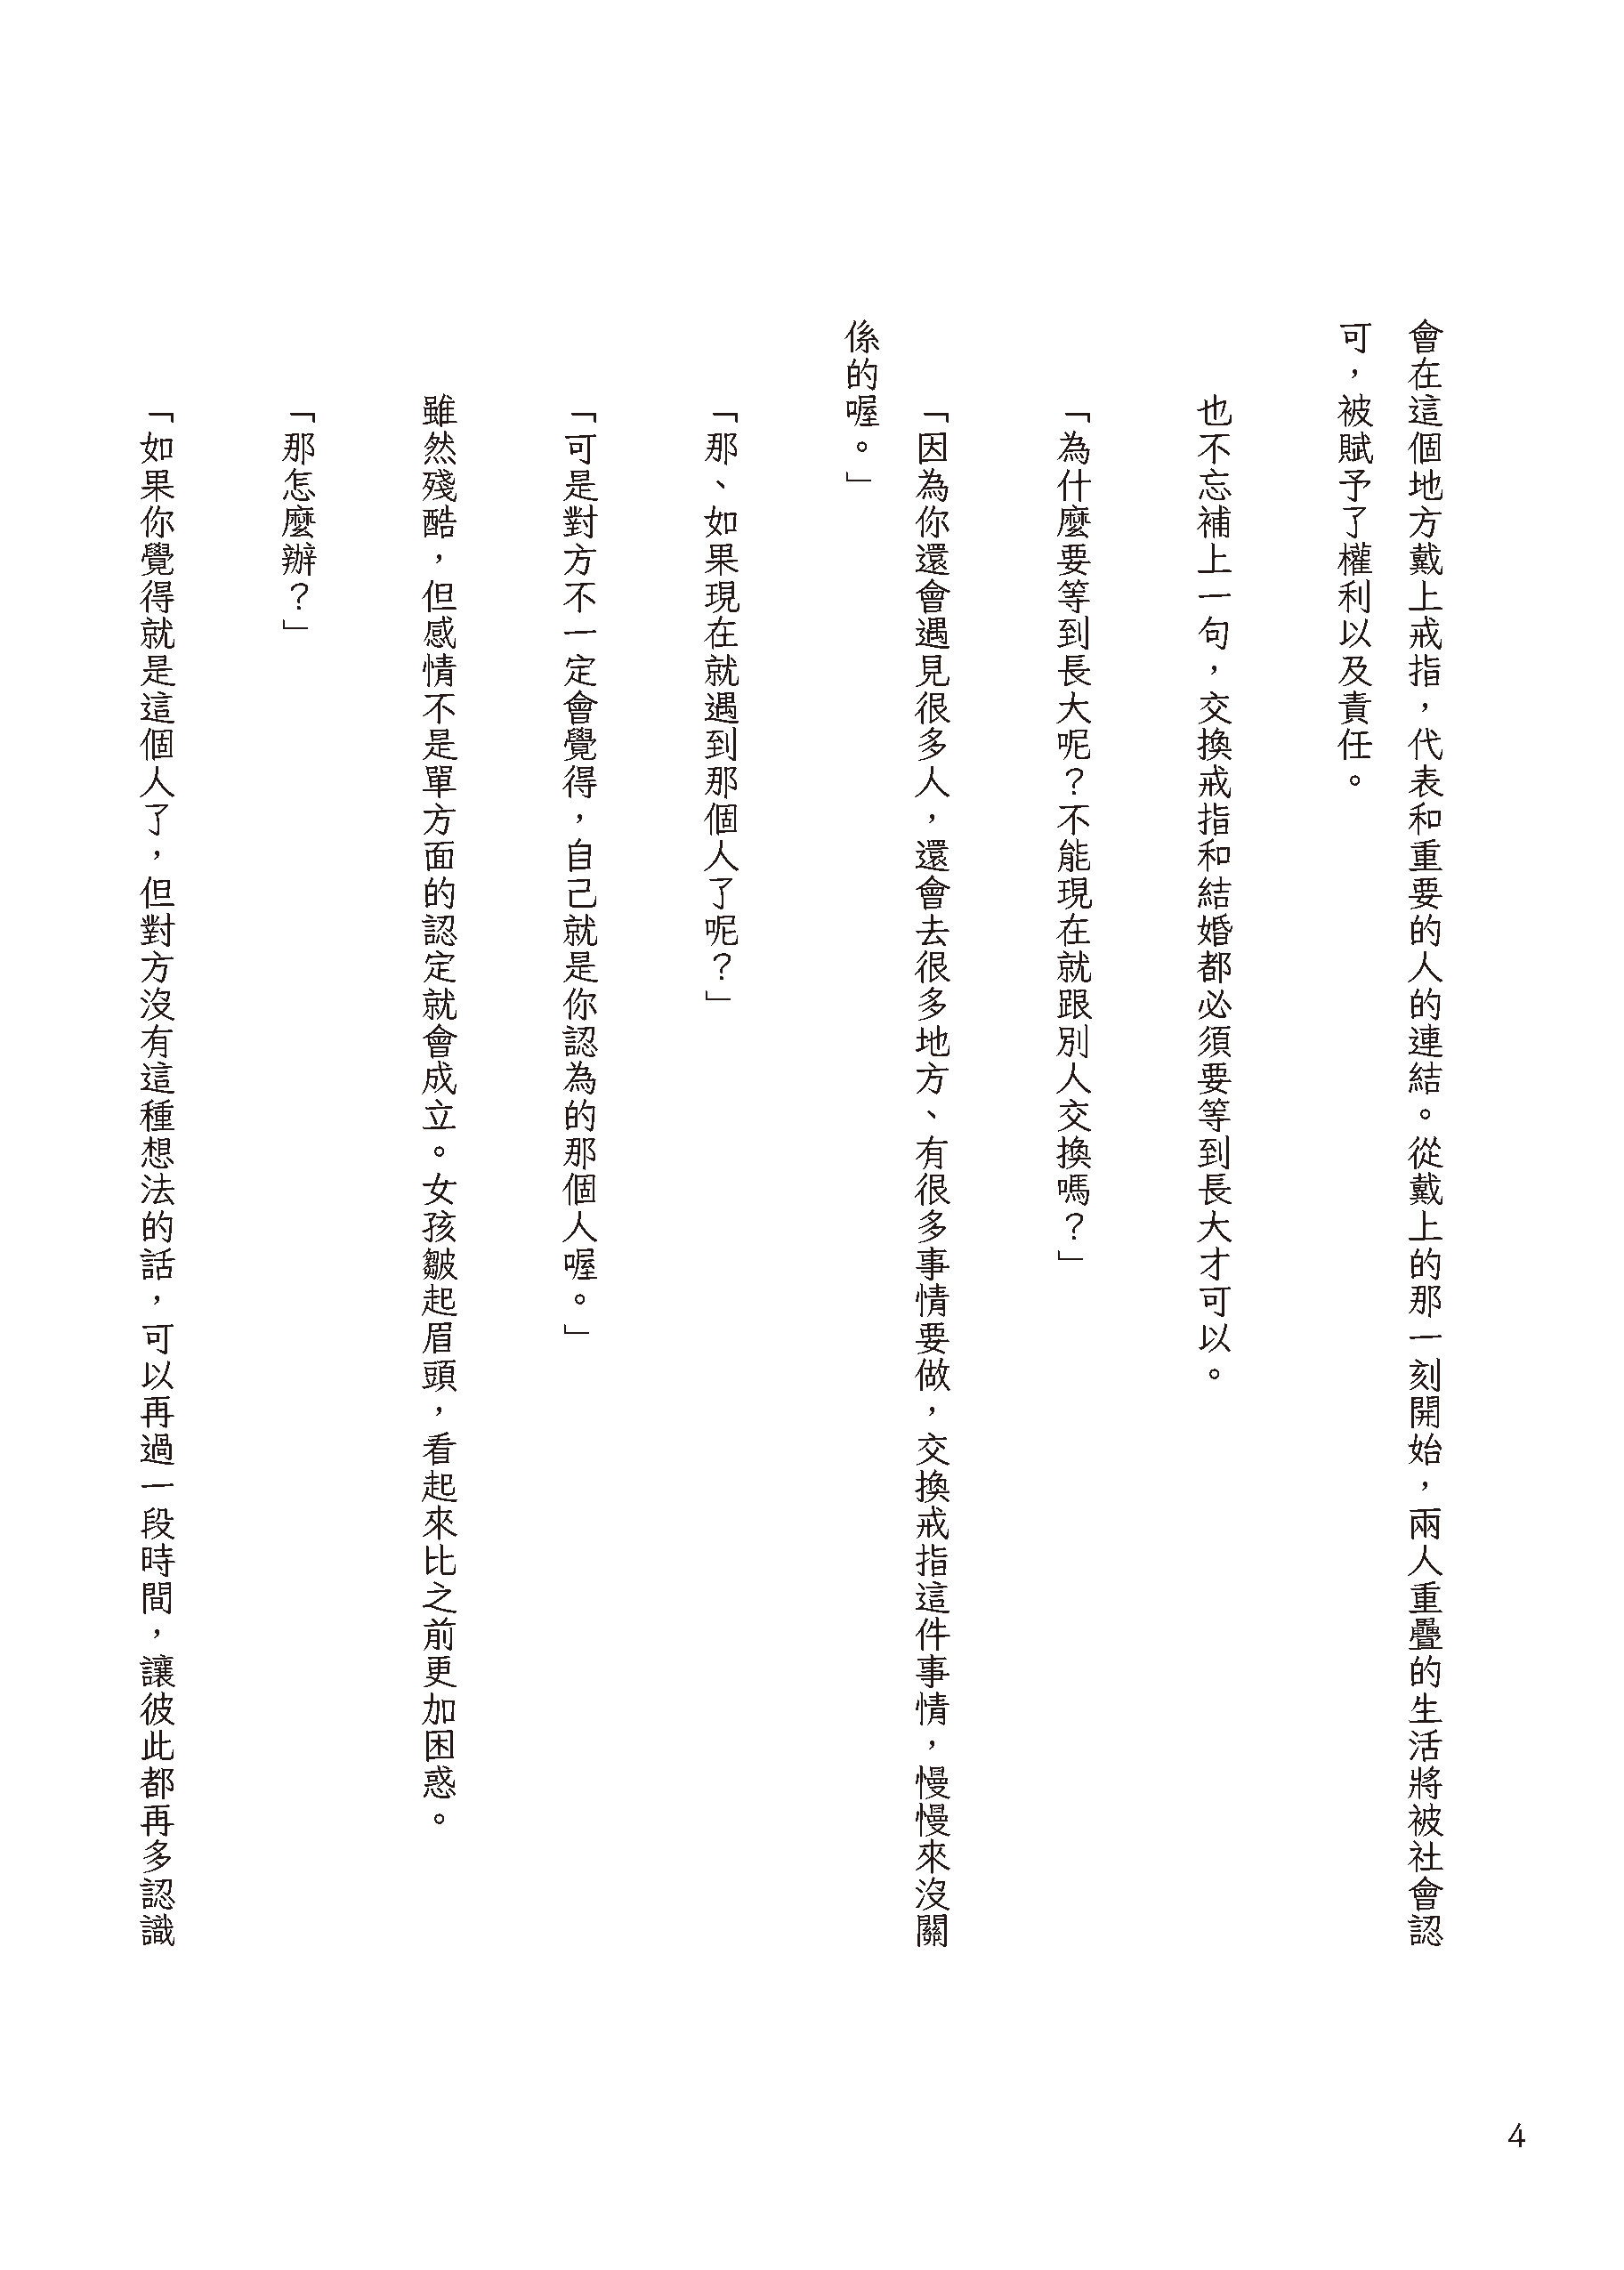 會在這個地方戴上戒指，代表和重要的人的連結。從戴上的那一刻開始，兩人重疊的生活將被社會認
可，被賦予了權利以及責任。
也不忘補上一句，交換戒指和結婚都必須要等到長大才可以。
「為什麼要等到長大呢？不能現在就跟別人交換嗎？」
「因為你還會遇見很多人，還會去很多地方、有很多事情要做，交換戒指這件事情，慢慢來沒關
係的喔。」
「那、如果現在就遇到那個人了呢？」
「可是對方不一定會覺得，自己就是你認為的那個人喔。」
雖然殘酷，但感情不是單方面的認定就會成立。女孩皺起眉頭，看起來比之前更加困惑。
「那怎麼辦？」
「如果你覺得就是這個人了，但對方沒有這種想法的話，可以再過一段時間，讓彼此都再多認識
4